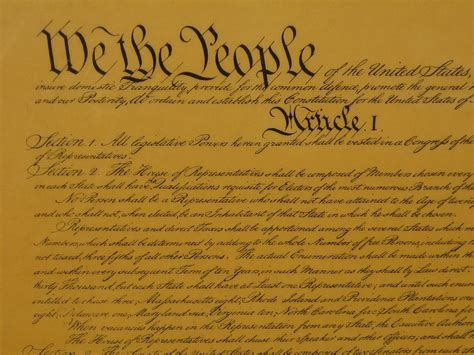 We the People of the United States,
insure domestic Tranquility, provide for the common defence, promote the general
and our Posterity, do ordain and establish this Constitution for the United States of
Article I
Section 1. All legislative Powers herein granted shall be vested in a Congress of the
of Representatives.
Section 2. The House of Representatives shall be composed of Members chosen every
in each State shall have Qualifications requisite for Electors of the most numerous Branch of
No Person shall be a Representative who shall not have attained to the Age of twenty
and who shall not, when elected, be an Inhabitant of that State in which he shall be chosen.
Representatives and direct Taxes shall be apportioned among the several States which
Numbers, which shall be determined by adding to the whole Number of free Persons, including
not taxed, three fifths of all other Persons. The actual Enumeration shall be made within
and within every subsequent Term of ten Years, in such Manner as they shall by Law
thirty Thousand, but each State shall have at Least one Representative; and until
entitled to chuse three, Massachusetts eight, Rhode Island and Providence Plantations
eight, Delaware one, Maryland six, Virginia ten, North Carolina five, South Carolina
When vacancies happen in the Representation from any State, the Executive
The House of Representatives shall chuse their Speaker and other Officers; and shall